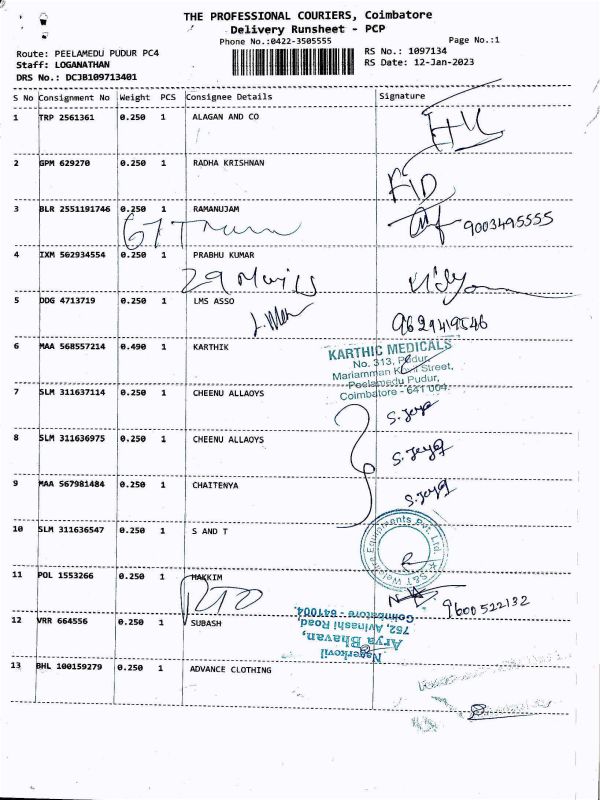 THE PROFESSIONAL COURIERS, Coimbatore
Delivery Runsheet - PCP
Phone No.:0422-3505555
Page No.:1
Route: PEELAMEDU PUDUR PC4
RS No.: 1097134
Staff: LOGANATHAN
RS Date: 12-Jan-2023
DRS No.: DCJB109713401
S No Consignment No Weight PCS Consignee Details Signature
1 TRP 2561361 0.250 1 ALAGAN AND CO
2 GPM 629270 0.250 1 RADHA KRISHNAN
3 BLR 2551191746 0.250 1 RAMANUJAM
9003495555
4 IXM 562934554 0.250 1 PRABHU KUMAR
5 DDG 4713719 0.250 1 LMS ASSO
9629419546
6 MAA 568557214 0.490 1 KARTHIK
KARTHIC MEDICALS
No. 313, Pudur,
Mariamman Kovil Street,
Peelamedu Pudur,
Coimbatore - 641 004.
7 SLM 311637114 0.250 1 CHEENU ALLAOYS
8 SLM 311636975 0.250 1 CHEENU ALLAOYS
9 MAA 567981484 0.250 1 CHAITENYA
10 SLM 311636547 0.250 1 S AND T
S&T Welcare Equipments Pvt. Ltd.
11 POL 1553266 0.250 1 HAKKIM
RTO
9600522132
12 VRR 664556 0.250 1 SUBASH
Nagerkovil
Arya Bhavan,
752, Avinashi Road,
Coimbatore - 641004.
13 BHL 100159279 0.250 1 ADVANCE CLOTHING